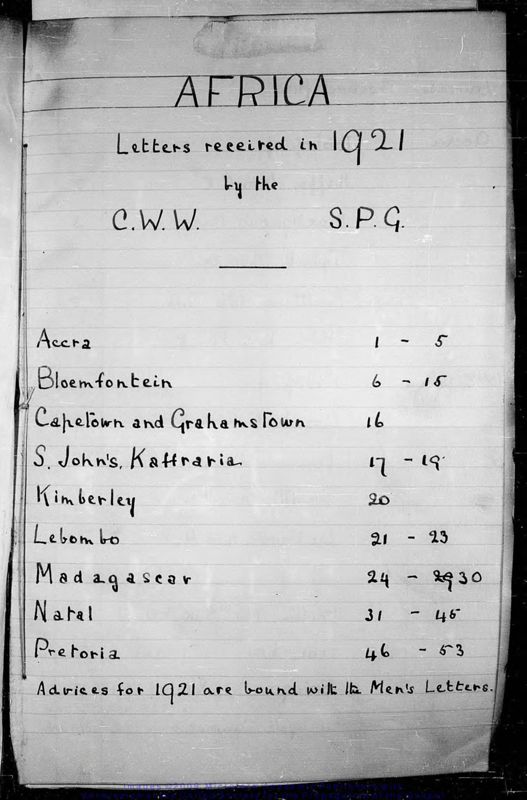 AFRICA
Letters received in 1921
by the
C.W.W. S.P.G.
Accra 1 - 5
Bloemfontein 6 - 15
Capetown and Grahamstown 16
S. John's, Kaffraria 17 - 19
Kimberley 20
Lebombo 21 - 23
Madagascar 24 - 29 30
Natal 31 - 45
Pretoria 46 - 53
Advices for 1921 are bound with the Men's Letters.